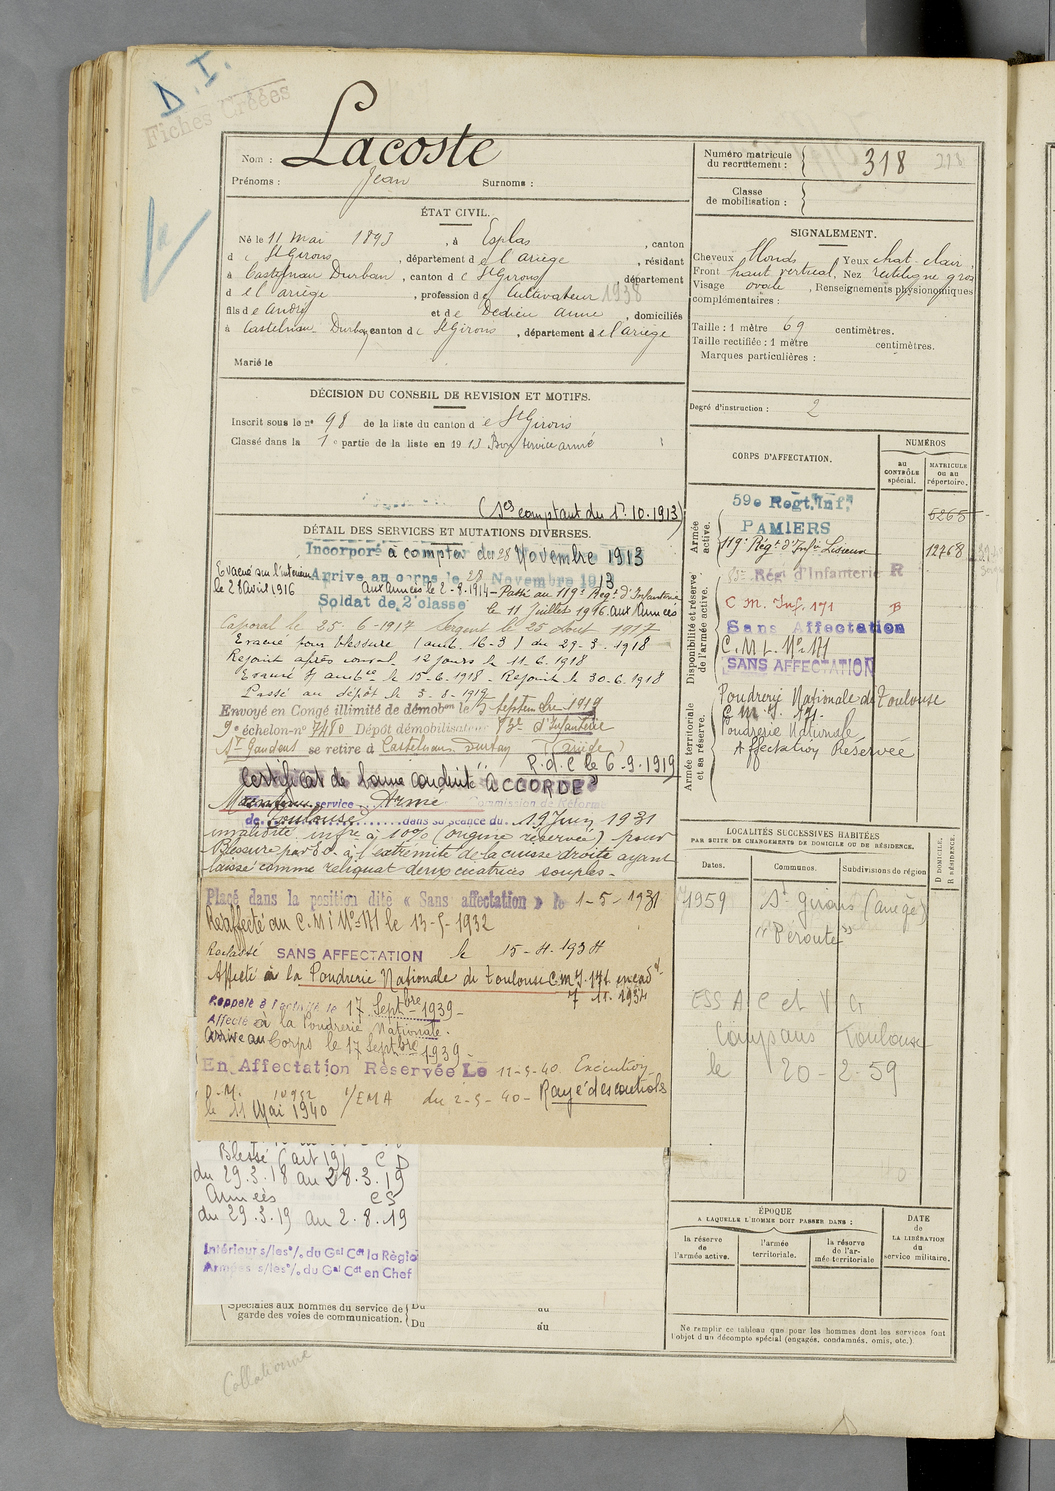 D. I.
Fiches Créées
Nom : Lacoste
Prénoms : Jean Surnoms :
Numéro matricule du recrutement : 318 318
Classe de mobilisation :
ÉTAT CIVIL.
Né le 11 mai 1893, à Esplas, canton
d e St Girons, département d e l'ariège, résidant
à Castelnau Durban, canton d e St Girons, département
d e l'ariège, profession d e Cultivateur 1938
fils d e André et d e Dedieu Anne, domiciliés
à Castelnau Durban, canton d e St Girons, département d e l'ariège
Marié le
SIGNALEMENT.
Cheveux blonds Yeux chat. clair,
Front haut vertical, Nez rectiligne gros
Visage ovale, Renseignements physionomiques
complémentaires :
Taille : 1 mètre 69 centimètres.
Taille rectifiée : 1 mètre centimètres.
Marques particulières :
Degré d'instruction : 2
DÉCISION DU CONSEIL DE REVISION ET MOTIFS.
Inscrit sous le n° 98 de la liste du canton d e St Girons
Classé dans la 1e partie de la liste en 1913 Bon service armé
(Ses comptant du 1er.10.1913)
DÉTAIL DES SERVICES ET MUTATIONS DIVERSES.
Incorporé à compter du 28 Novembre 1913
Evacué sur l'intérieur
le 28 avril 1916
Arrive au corps le 28 Novembre 1913
aux Armées le 2-8-1914 - Passé au 119e Régt d'Infanterie
Soldat de 2e classe le 11 Juillet 1916. aux Armées
Caporal le 25-6-1917 Sergent le 25 Aout 1917
Evacué pour blessure (amb. 16-3) du 29-3-1918
Rejoint après conval. 12 jours le 11.6.1918
Evacué le 15.6.1918 - Rejoint le 30.6.1918
Passé au dépôt le 3-8-1919
Envoyé en Congé illimité de démobon le 5 septembre 1919
9e échelon-n° 7480 Dépôt démobilisateur d'Infanterie
St Gaudens se retire à Castelnau Durban (ariège)
R.d.C le 6-9-1919
Certificat de bonne conduite "ACCORDÉ"
Maintenu service Armé Commission de Réforme
de Toulouse dans sa séance du 19 Juin 1931
invalidité infre à 10% (origine réservée) pour
Blessure par E.O. à l'extrémité de la cuisse droite ayant
laissé comme reliquat deux cicatrices souples -
Placé dans la position dite « Sans affectation » le 1-5-1931
Réaffecté au C.M.I N° 171 le 13-5-1932
Reclassé SANS AFFECTATION le 15-4-1934
Affecté à la Poudrerie Nationale de Toulouse C.M.I. 171 encadt
7 11.1934
Rappelé à l'activité le 17 Septbre 1939 -
Affecté à la Poudrerie Nationale.
Arrivé au Corps le 17 Septbre 1939 -
En Affectation Réservée Le 11-5-40. Exécution
D.M. 1/EMA du 2-5-40 - Rayé des controles
le 11 Mai 1940
Blessé (art 19) CD
du 29.3.18 au 28.3.19
Armées CS
du 29.3.19 au 2.8.19
Intérieur s/les °/. du Gal Cdt la Régio
Armées s/les °/. du Gal Cdt en Chef
Spéciales aux hommes du service de garde des voies de communication.
Du au
Du au
CORPS D'AFFECTATION.
NUMÉROS
au CONTRÔLE spécial.
MATRICULE ou au répertoire.
Armée active.
59e Regt. Inf. 6265
PAMIERS
119e Régt d'Infie Lisieux 12468
Disponibilité et réserve de l'armée active.
Régt d'Infanterie R
C M. Inf. 171 B
Sans Affectation
C.M.I. N° 171
SANS AFFECTATION
Armée territoriale et sa réserve.
Poudrerie Nationale de Toulouse
C. M. I. 171.
Poudrerie Nationale
Affectation Réservée
LOCALITÉS SUCCESSIVES HABITÉES
PAR SUITE DE CHANGEMENTS DE DOMICILE OU DE RÉSIDENCE.
Dates. Communes. Subdivisions de région D DOMICILE. R RÉSIDENCE.
1959 St Girons (ariège)
"Péroute"
ESS A C et V G
Compans Toulouse
le 20-2-59
ÉPOQUE
A LAQUELLE L'HOMME DOIT PASSER DANS :
la réserve de l'armée active.
l'armée territoriale.
la réserve de l'armée territoriale
DATE de LA LIBÉRATION du service militaire.
Ne remplir ce tableau que pour les hommes dont les services font
l'objet d'un décompte spécial (engagés, condamnés, omis, etc.)
Collationné